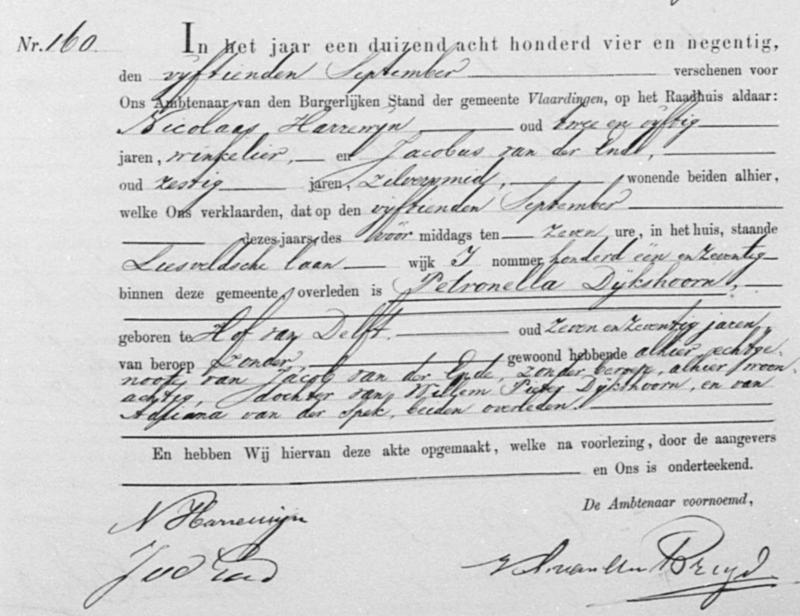 Nr. 160. In het jaar een duizend acht honderd vier en negentig,
den vyftienden September verschenen voor
Ons Ambtenaar van den Burgerlijken Stand der gemeente Vlaardingen, op het Raadhuis aldaar:
Nicolaas Harrewyn oud twee en vyftig
jaren, winkelier, en Jacobus van der Ende,
oud zestig jaren, zilversmid, wonende beiden alhier,
welke Ons verklaarden, dat op den vyftienden September
dezes jaars des vóór middags ten zeven ure, in het huis, staande
Liesveldsche laan wijk I nommer honderd één en zeventig
binnen deze gemeente, overleden is Petronella Dykshoorn,
geboren te Hof van Delft. oud zeven en zeventig jaren,
van beroep zonder, gewoond hebbende alhier, echtge-
noote van Jacob van der Ende, zonder beroep, alhier woon-
achtig, dochter van Willem Pieter Dykshoorn, en van
Adriana van der Spek, beiden overleden.
En hebben Wij hiervan deze akte opgemaakt, welke na voorlezing, door de aangevers
en Ons is onderteekend.
De Ambtenaar voornoemd,
N Harrewijn